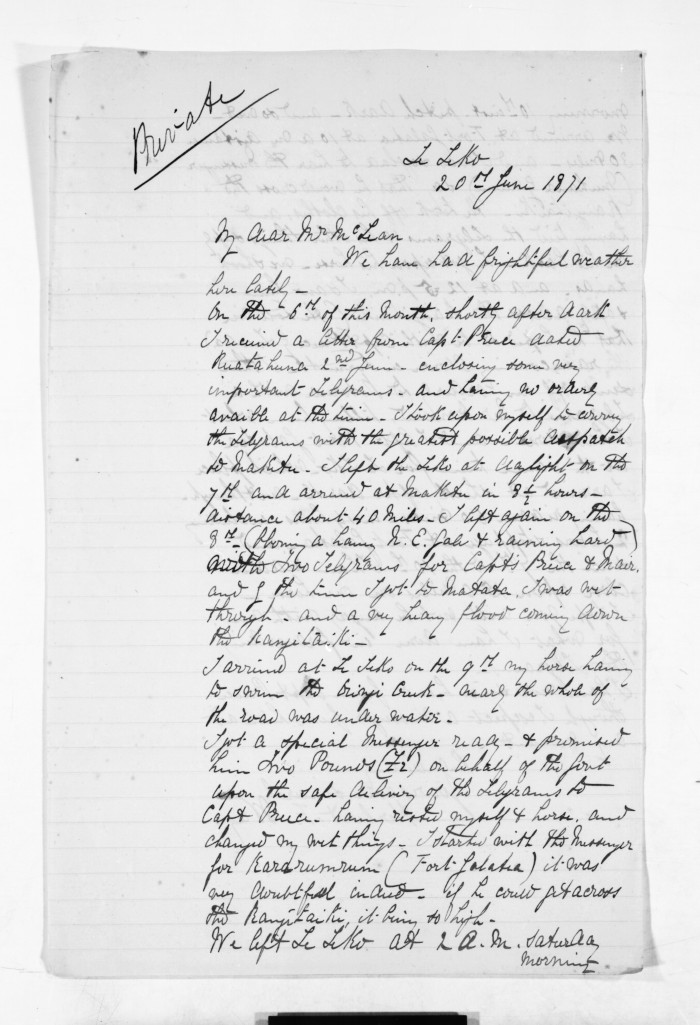 Private
Te Teko
20th June 1871
My dear Mr McLean
We have had frightful weather
here lately -
On the 6th of this Month, shortly after dark
I received a letter from Capt Preece dated
Ruatahuna 2nd June - enclosing some very
important Telegrams - and having no orderly
avaible at the time - I took upon myself to convey
the Telegrams with the greatest possible despatch
to Maketu - I left the Teko at daylight on the
7th and arrived at Maketu in 8½ hours -
distance about 40 Miles - I left again on the
8th (Blowing a heavy N. E. gale & raining hard)
with Two Telegrams for Capts Preece & Mair,
and by the time I got to Matata, I was wet
through - and a very heavy flood coming down
the Rangitaiki -
I arrived at Te Teko on the 9th my horse having
to swim the Creek - nearly the whole of
the road was under water -
I got a special Messenger ready - & promised
him Two Pounds (£2) on behalf of the Govt
upon the safe delivery of the Telegrams to
Capt Preece - having rested myself & horse, and
changed my wet things - I started with the Messenger
for Kararumrum (Fort Galatea) it was
very doubtful indeed - if he could get across
the Rangitaiki, it being so high -
We left Te Teko at 2 A.M. Saturday
morning